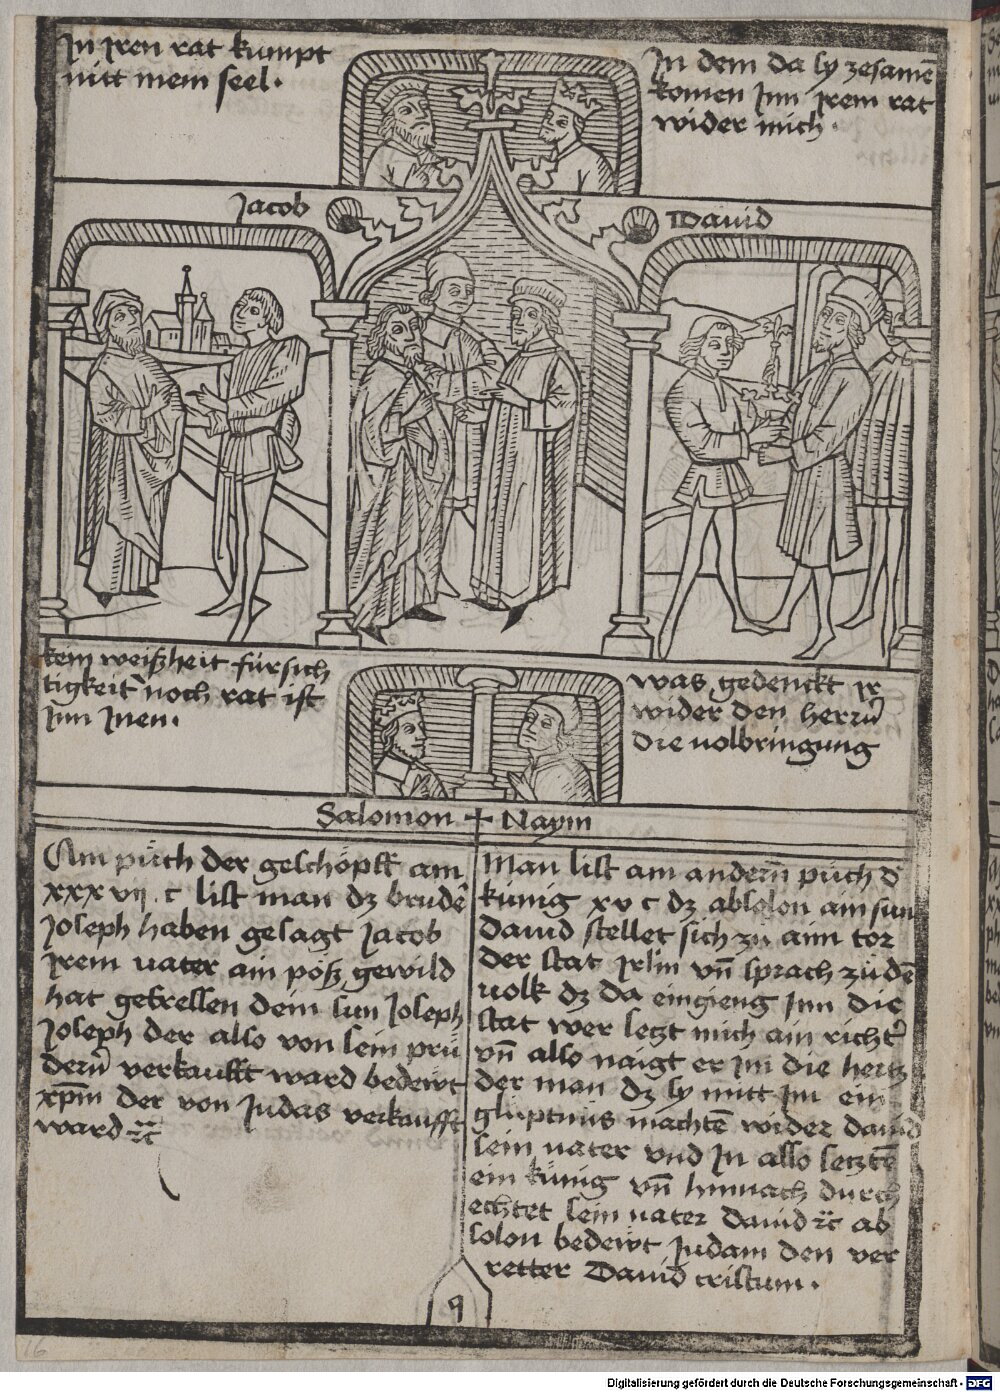 Jn jren rat kumpt
nitt mein seel.
Jn dem da sy zesamē
komen Jnn jrem rat
wider mich.
Jacob
Dauid
kein weißheit fürsich
tigkeit noch rat ist
Jnn Jnen.
was gedenckt jr
wider den herrn̄
die volbringung
Salomon + Naym
Am pu̍ch der geschöpff am
xxxvij. c list man dz brudē
Joseph haben gesagt Jacob
jrem vater ain pöß gewild
hat gefressen dein sun Joseph
Joseph der also von sein pru̍
dern̄ verkaufft ward bedeẅt
xp̄m der von Judas verkaufft
ward ꝛc̈
Man list am andern̄ pu̍ch d̕
künig xv c dz absolon ain sun
Dauid stellet sich zu̍ ainn tor
der stat jrl̄m vn̄ sprach zu̍ dē
volk dz da eingieng Jnn die
stat wer setzt mich ain richt̕
vn̄ also naigt er jm die hertz
der man dz sy mitt Jm ein
glüptnüs machtē wider dauid
sein vater vnd Jn also setztē
ein künig vn̄ hinnach durch
echtet sein vater dauid ꝛc̈ ab
solon bedeẅt Judam den ver
retter Dauid cristum.
9
16
Digitalisierung gefördert durch die Deutsche Forschungsgemeinschaft - DFG